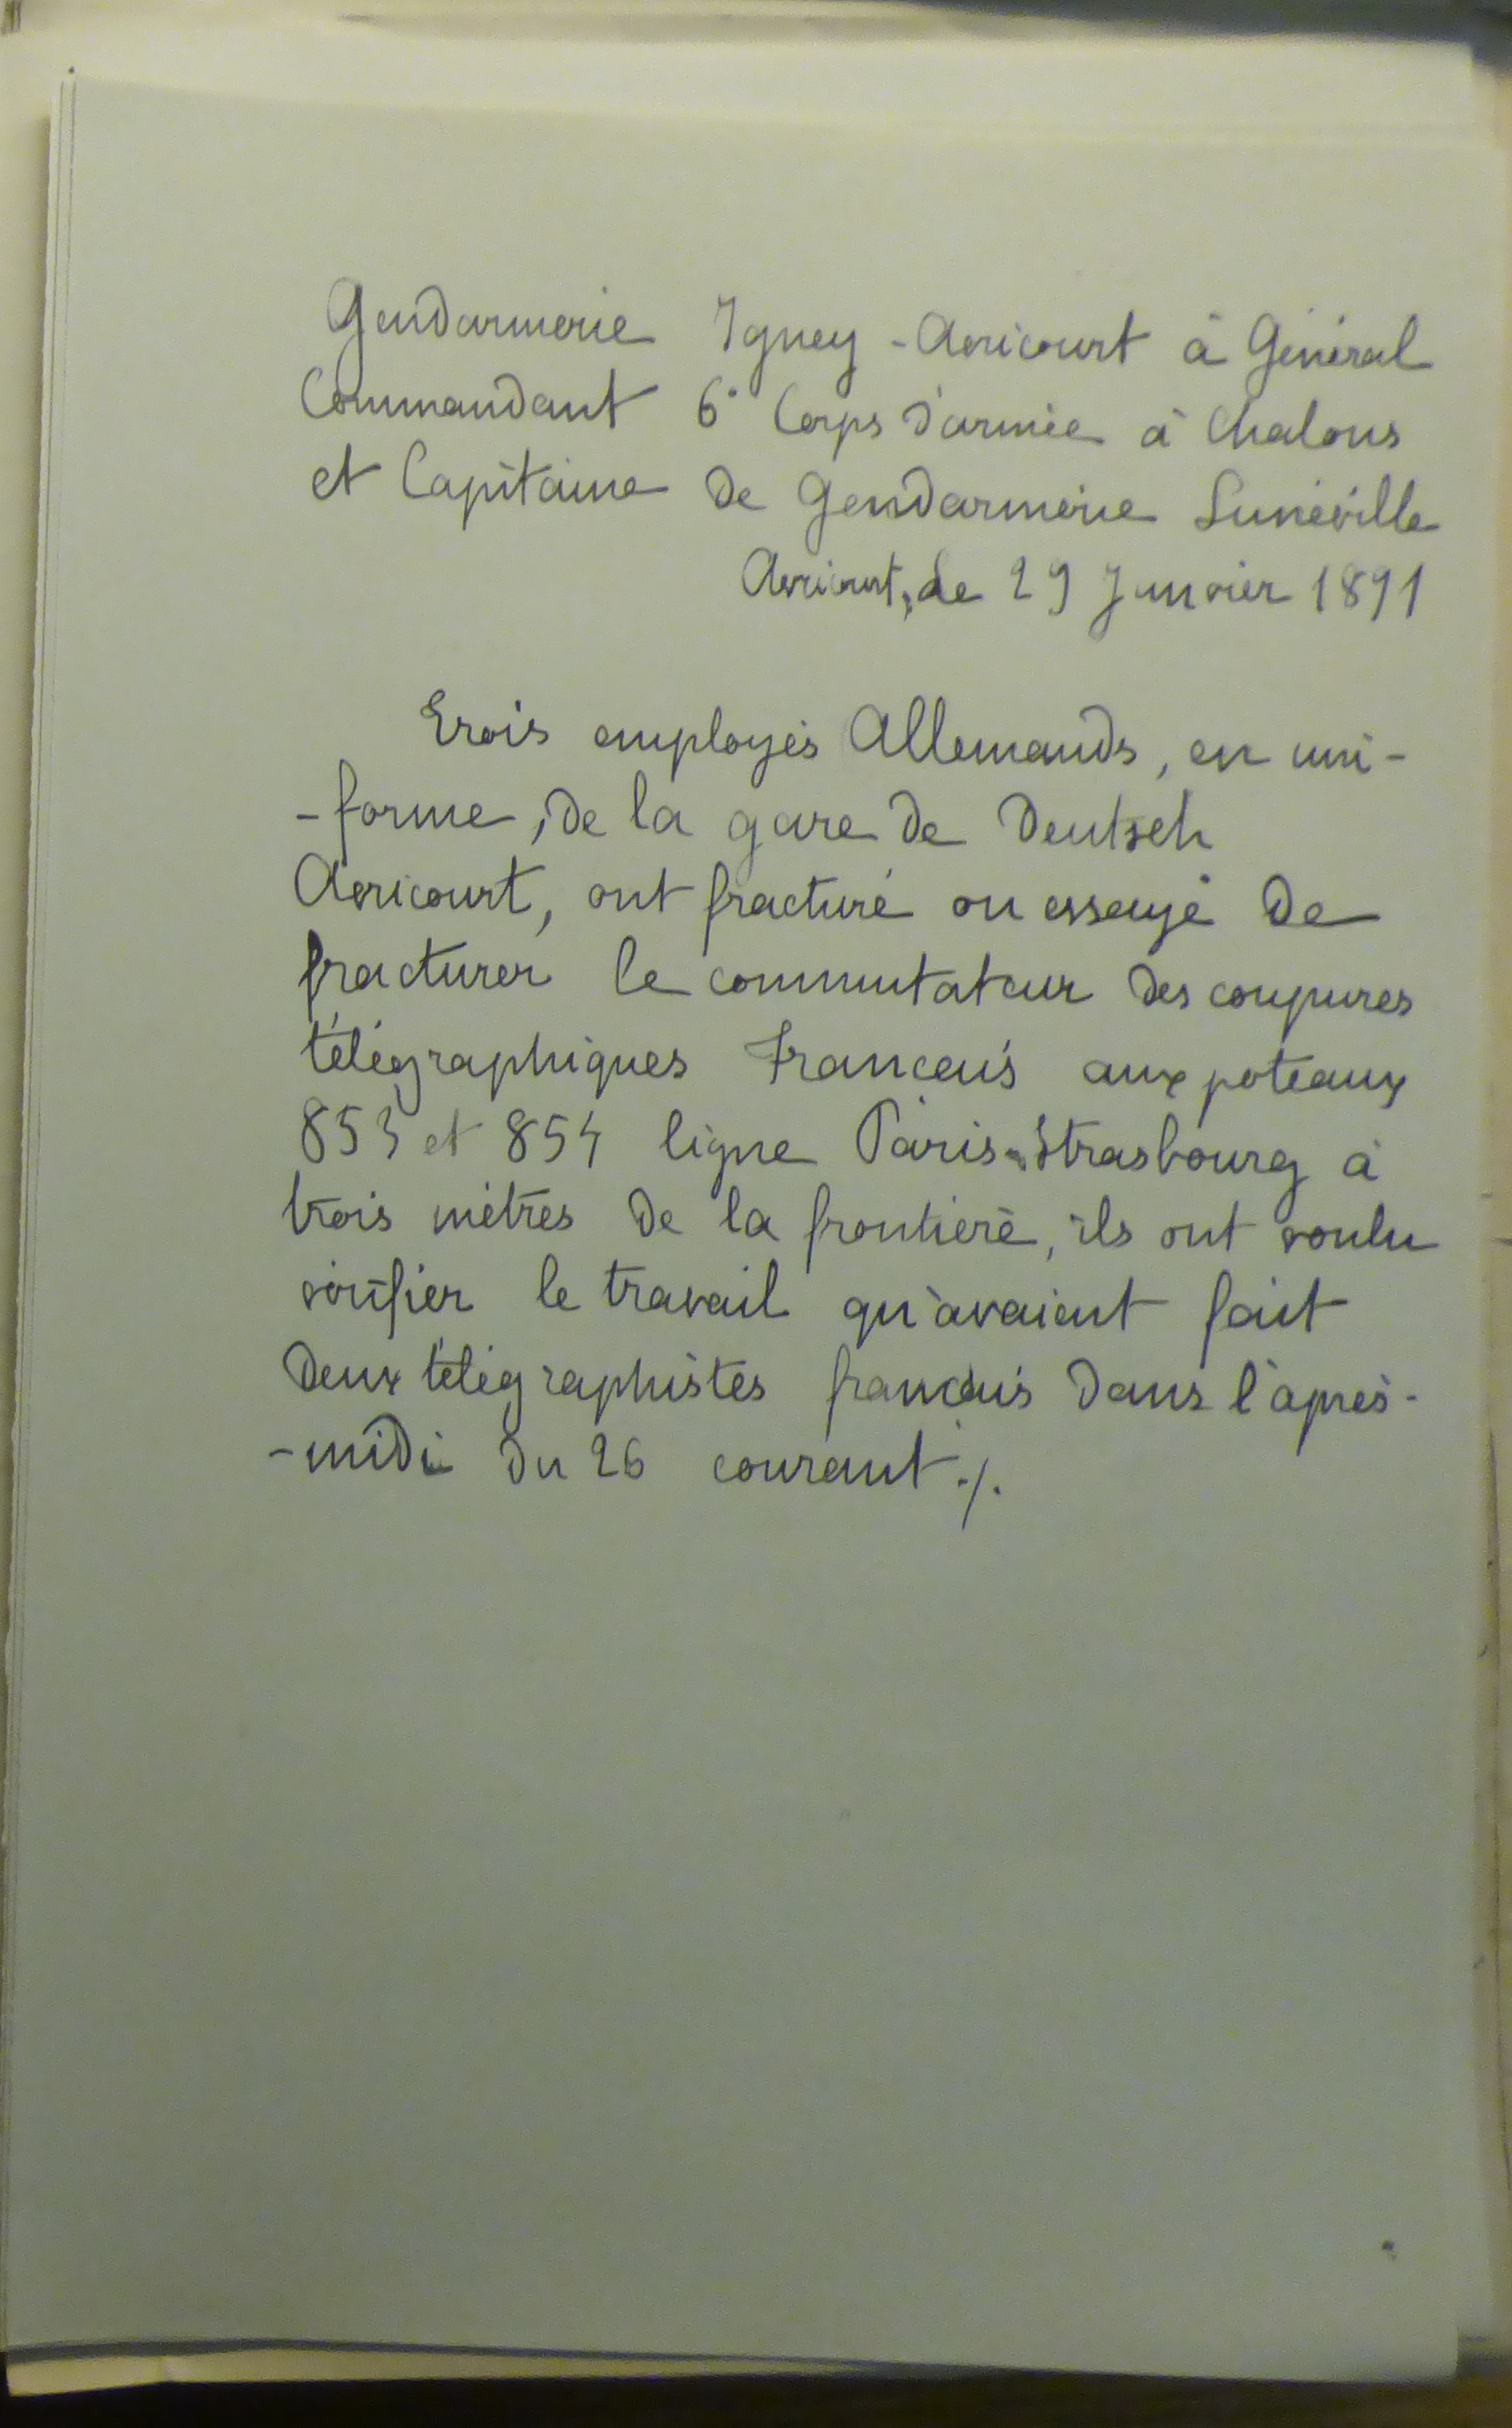 Gendarmerie Igney-Avricourt à Général
Commandant 6e Corps d'armée à Chalons
et Capitaine de Gendarmerie Lunéville
Avricourt, le 29 Janvier 1891
Trois employés Allemands, en uni-
-forme, de la gare de Deutsch
Avricourt, ont fracturé ou essayé de
fracturer le commutateur des coupures
télégraphiques Français aux poteaux
853 et 854 ligne Paris-Strasbourg à
trois mètres de la frontière, ils ont voulu
vérifier le travail qu'avaient fait
deux télégraphistes français dans l'après-
-midi du 26 courant ./.